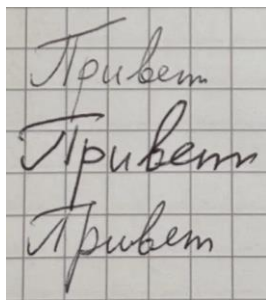 Привет
Привет
Привет